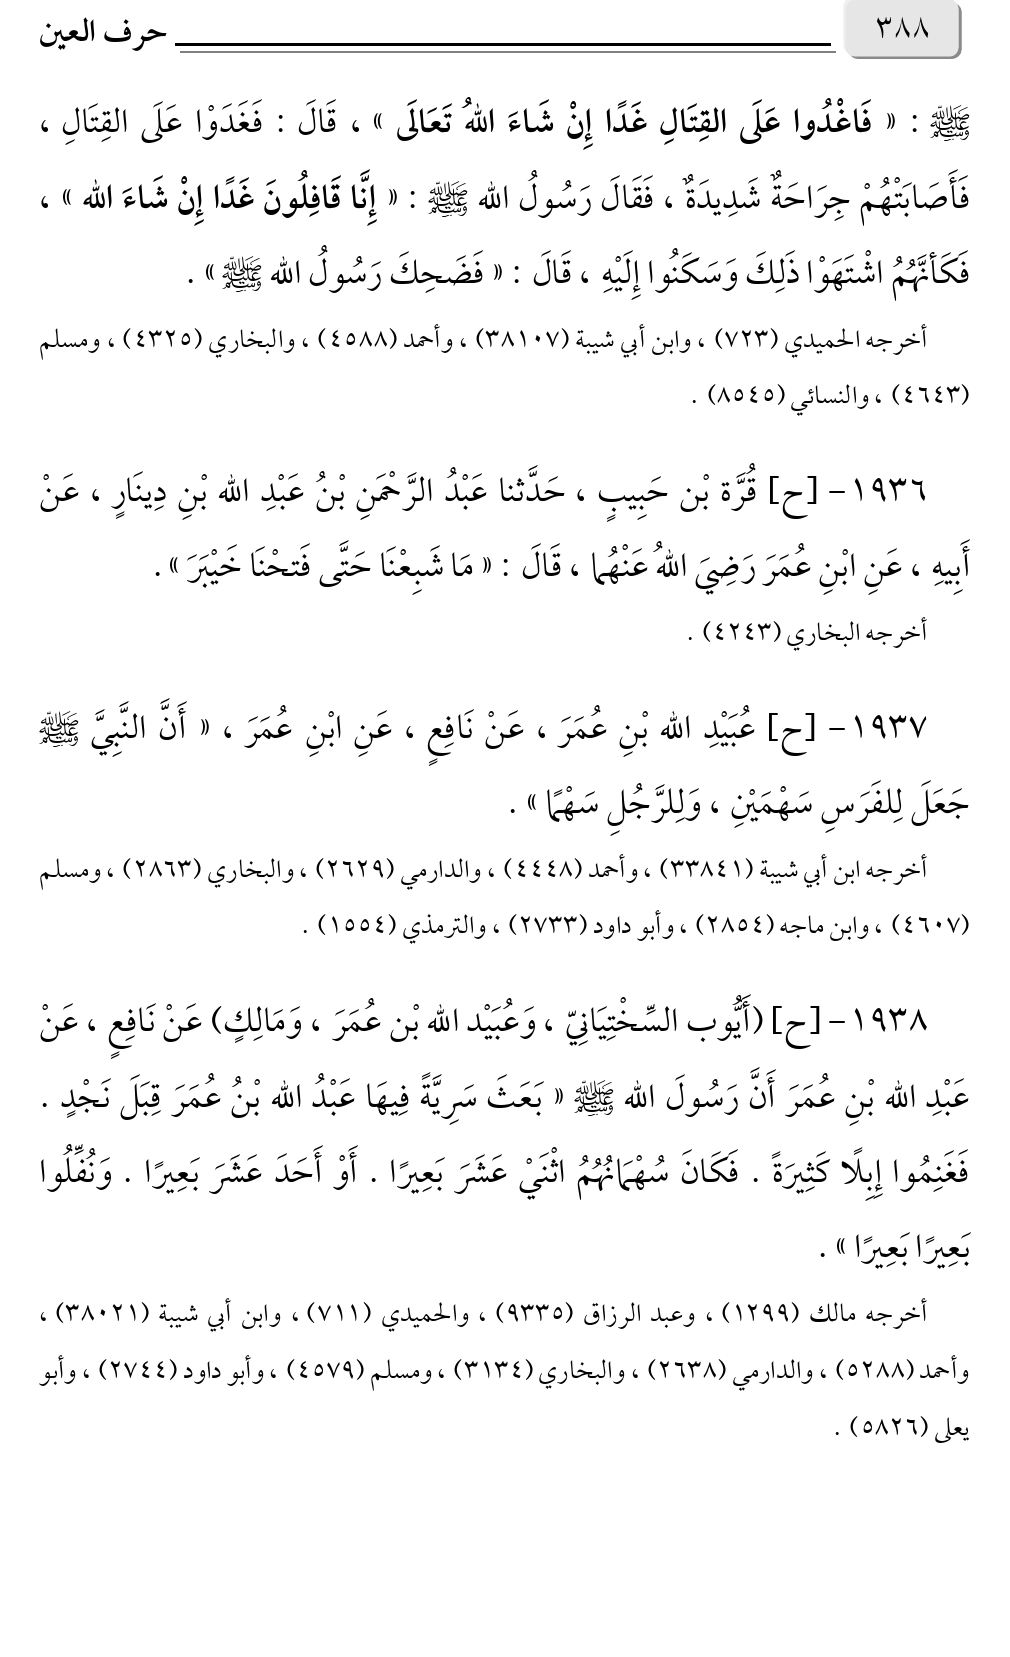 ٣٨٨
حرف العين
ﷺ : « فَاغْدُوا عَلَى القِتَالِ غَدًا إِنْ شَاءَ اللهُ تَعَالَى » ، قَالَ : فَغَدَوْا عَلَى القِتَالِ ،
فَأَصَابَتْهُمْ جِرَاحَةٌ شَدِيدَةٌ ، فَقَالَ رَسُولُ الله ﷺ : « إِنَّا قَافِلُونَ غَدًا إِنْ شَاءَ الله » ،
فَكَأنَّهُمُ اشْتَهَوْا ذَلِكَ وَسَكَنُوا إِلَيْهِ ، قَالَ : « فَضَحِكَ رَسُولُ الله ﷺ » .
أخرجه الحميدي (٧٢٣) ، وابن أبي شيبة (٣٨١٠٧) ، وأحمد (٤٥٨٨) ، والبخاري (٤٣٢٥) ، ومسلم
(٤٦٤٣) ، والنسائي (٨٥٤٥) .
١٩٣٦ – [ح] قُرَّة بْن حَبِيبٍ ، حَدَّثنا عَبْدُ الرَّحْمَنِ بْنُ عَبْدِ الله بْنِ دِينَارٍ ، عَنْ
أَبِيهِ ، عَنِ ابْنِ عُمَرَ رَضِيَ اللهُ عَنْهُما ، قَالَ : « مَا شَبِعْنَا حَتَّى فَتحْنَا خَيْبَرَ » .
أخرجه البخاري (٤٢٤٣) .
١٩٣٧ – [ح] عُبَيْدِ الله بْنِ عُمَرَ ، عَنْ نَافِعٍ ، عَنِ ابْنِ عُمَرَ ، « أَنَّ النَّبِيَّ ﷺ
جَعَلَ لِلفَرَسِ سَهْمَيْنِ ، وَلِلرَّجُلِ سَهْمًا » .
أخرجه ابن أبي شيبة (٣٣٨٤١) ، وأحمد (٤٤٤٨) ، والدارمي (٢٦٢٩) ، والبخاري (٢٨٦٣) ، ومسلم
(٤٦٠٧) ، وابن ماجه (٢٨٥٤) ، وأبو داود (٢٧٣٣) ، والترمذي (١٥٥٤) .
١٩٣٨ – [ح] (أَيُّوب السِّخْتِيَانِيّ ، وَعُبَيْد الله بْن عُمَرَ ، وَمَالِكٍ) عَنْ نَافِعٍ ، عَنْ
عَبْدِ الله بْنِ عُمَرَ أَنَّ رَسُولَ الله ﷺ « بَعَثَ سَرِيَّةً فِيهَا عَبْدُ الله بْنُ عُمَرَ قِبَلَ نَجْدٍ .
فَغَنِمُوا إِبِلًا كَثِيرَةً . فَكَانَ سُهْمَانُهُمُ اثْنَيْ عَشَرَ بَعِيرًا . أَوْ أَحَدَ عَشَرَ بَعِيرًا . وَنُفِّلُوا
بَعِيرًا بَعِيرًا » .
أخرجه مالك (١٢٩٩) ، وعبد الرزاق (٩٣٣٥) ، والحميدي (٧١١) ، وابن أبي شيبة (٣٨٠٢١) ،
وأحمد (٥٢٨٨) ، والدارمي (٢٦٣٨) ، والبخاري (٣١٣٤) ، ومسلم (٤٥٧٩) ، وأبو داود (٢٧٤٤) ، وأبو
يعلى (٥٨٢٦) .